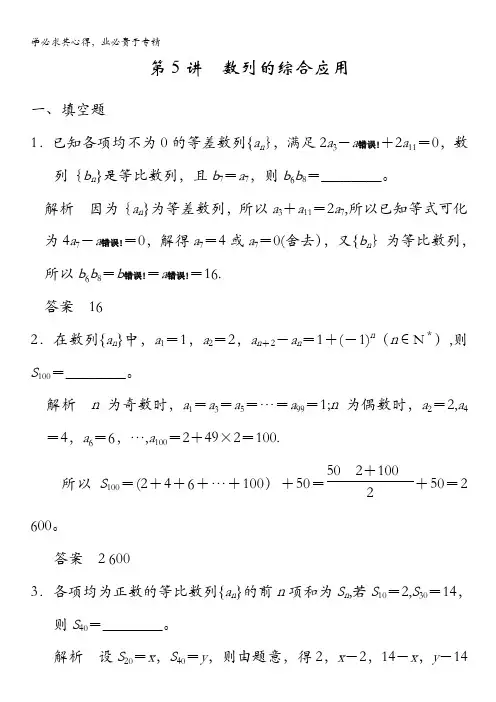 学必求其心得，业必贵于专精
第5讲 数列的综合应用
一、填空题
1．已知各项均不为0的等差数列{aₙ}，满足2a₃－a错误!＋2a₁₁＝0，数
列｛bₙ｝是等比数列，且b₇＝a₇，则b₆b₈＝________。
解析 因为｛aₙ｝为等差数列，所以a₃＋a₁₁＝2a₇,所以已知等式可化
为4a₇－a错误!＝0，解得a₇＝4或a₇＝0(舍去)，又{bₙ｝为等比数列，
所以b₆b₈＝b错误!＝a错误!＝16.
答案 16
2．在数列{aₙ}中，a₁＝1，a₂＝2，aₙ₊₂－aₙ＝1＋(－1)ⁿ（n∈N*）,则
S₁₀₀＝________。
解析 n为奇数时，a₁＝a₃＝a₅＝…＝a₉₉＝1;n为偶数时，a₂＝2,a₄
＝4，a₆＝6，…,a₁₀₀＝2＋49×2＝100.
所以S₁₀₀＝(2＋4＋6＋…＋100）＋50＝50 2＋100/2＋50＝2
600。
答案 2 600
3．各项均为正数的等比数列{aₙ}的前n项和为Sₙ,若S₁₀＝2,S₃₀＝14，
则S₄₀＝________。
解析 设S₂₀＝x，S₄₀＝y，则由题意，得2，x－2，14－x，y－14